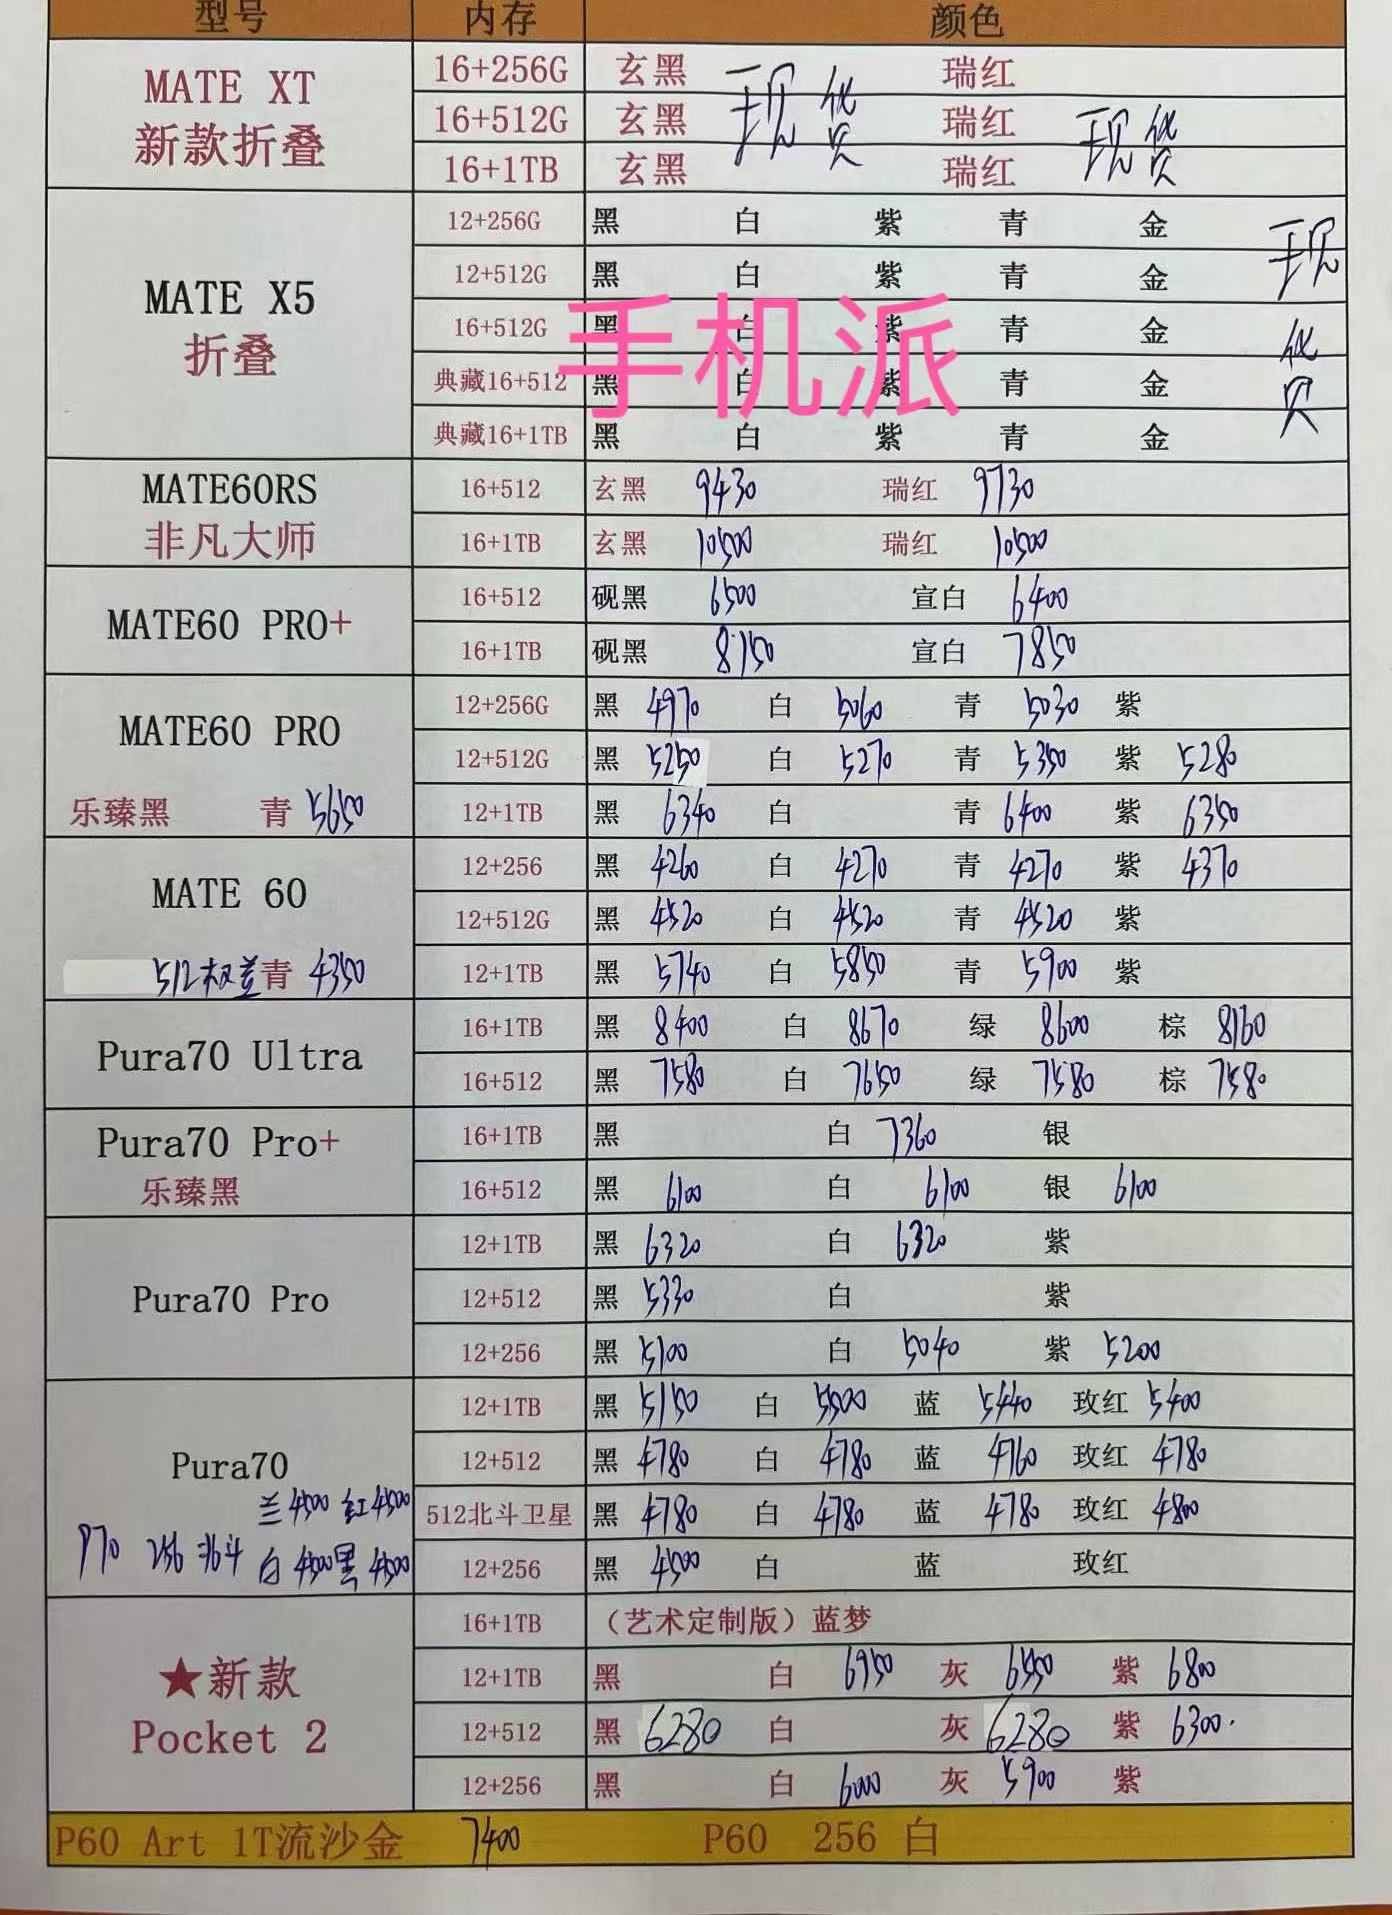 型号 内存 颜色
MATE XT 16+256G 玄黑 现货 瑞红 现货
新款折叠 16+512G 玄黑 瑞红
16+1TB 玄黑 瑞红
12+256G 黑 白 紫 青 金 现货
12+512G 黑 白 紫 青 金
MATE X5 16+512G 黑 白 紫 青 金
折叠 典藏16+512 黑 白 紫 青 金
典藏16+1TB 黑 白 紫 青 金
手机派
MATE60RS 16+512 玄黑 9430 瑞红 9730
非凡大师 16+1TB 玄黑 10500 瑞红 10500
MATE60 PRO+ 16+512 砚黑 6500 宣白 6400
16+1TB 砚黑 8150 宣白 7850
MATE60 PRO 12+256G 黑 4970 白 5060 青 5030 紫
12+512G 黑 5250 白 5270 青 5350 紫 5280
乐臻黑 青 5650 12+1TB 黑 6340 白 青 6400 紫 6350
MATE 60 12+256 黑 4260 白 4270 青 4270 紫 4370
12+512G 黑 4520 白 4520 青 4520 紫
512权益青 4350 12+1TB 黑 5740 白 5850 青 5900 紫
Pura70 Ultra 16+1TB 黑 8400 白 8670 绿 8600 棕 8160
16+512 黑 7580 白 7650 绿 7580 棕 7580
Pura70 Pro+ 16+1TB 黑 白 7360 银
乐臻黑 16+512 黑 6100 白 6100 银 6100
12+1TB 黑 6320 白 6320 紫
Pura70 Pro 12+512 黑 5330 白 紫
12+256 黑 5100 白 5040 紫 5200
12+1TB 黑 5150 白 5500 蓝 5440 玫红 5400
Pura70 12+512 黑 4780 白 4780 蓝 4760 玫红 4780
兰 4500 红 4500 512北斗卫星 黑 4780 白 4780 蓝 4780 玫红 4800
P70 256 北斗 白 4500 黑 4500 12+256 黑 4500 白 蓝 玫红
16+1TB （艺术定制版）蓝梦
★新款 12+1TB 黑 白 6950 灰 6550 紫 6800
Pocket 2 12+512 黑 6280 白 灰 6280 紫 6300.
12+256 黑 白 6000 灰 5900 紫
P60 Art 1T流沙金 7400 P60 256 白